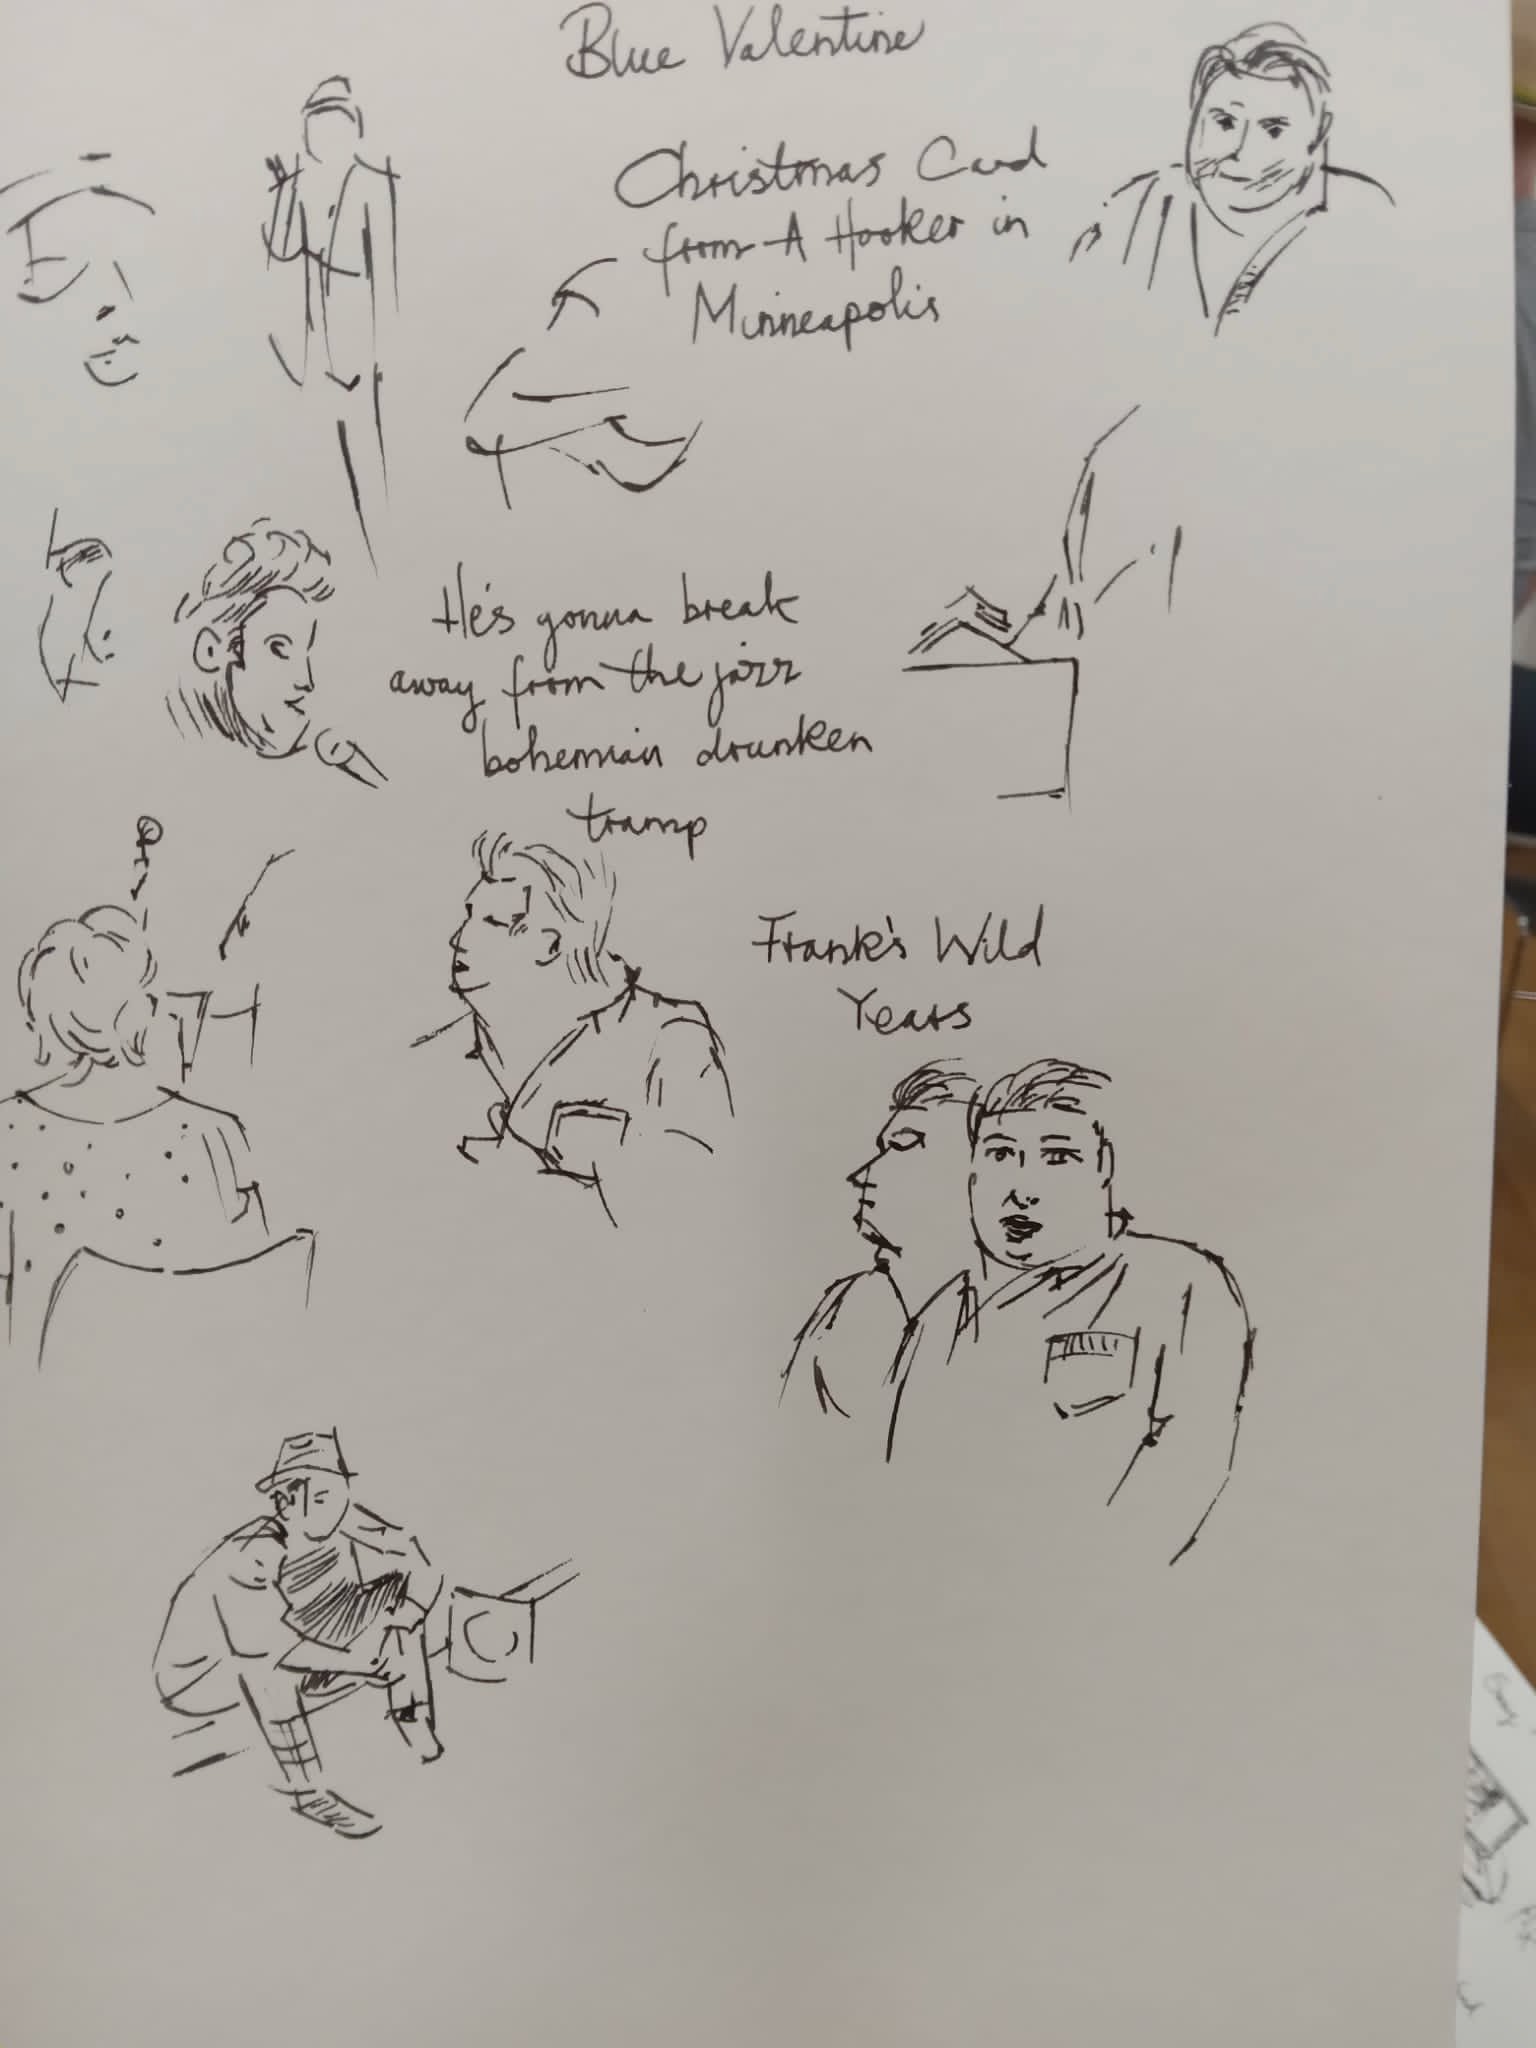 Blue Valentine
Christmas Card
from A Hooker in
Minneapolis
He's gonna break
away from the jazz
bohemian drunken
tramp
Frank's Wild
Years